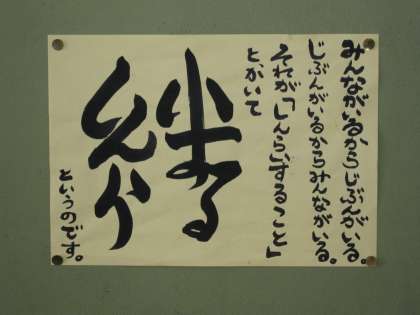 みんながいるからじぶんがいる。
じぶんがいるからみんながいる。
それが「しんらいすること」
とかいて
というのです。